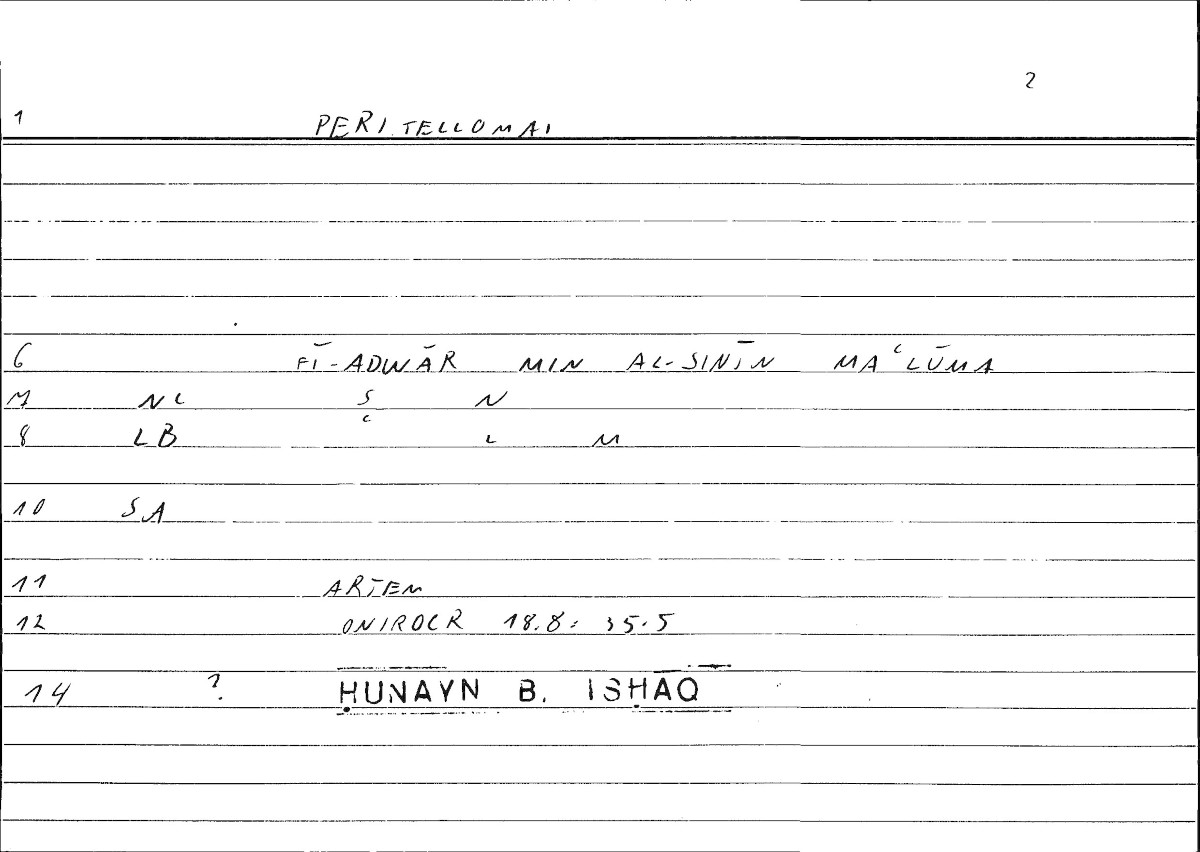 2
1 PERITELLOMAI
6 FĪ-ADWĀR MIN AL-SINĪN MAʿLŪMA
7 NL S N
8 LB ʿ L M
10 SA
11 ARTEM
12 ONIROCR 18.8: 35.5
14 ? ḤUNAYN B. ISḤĀQ